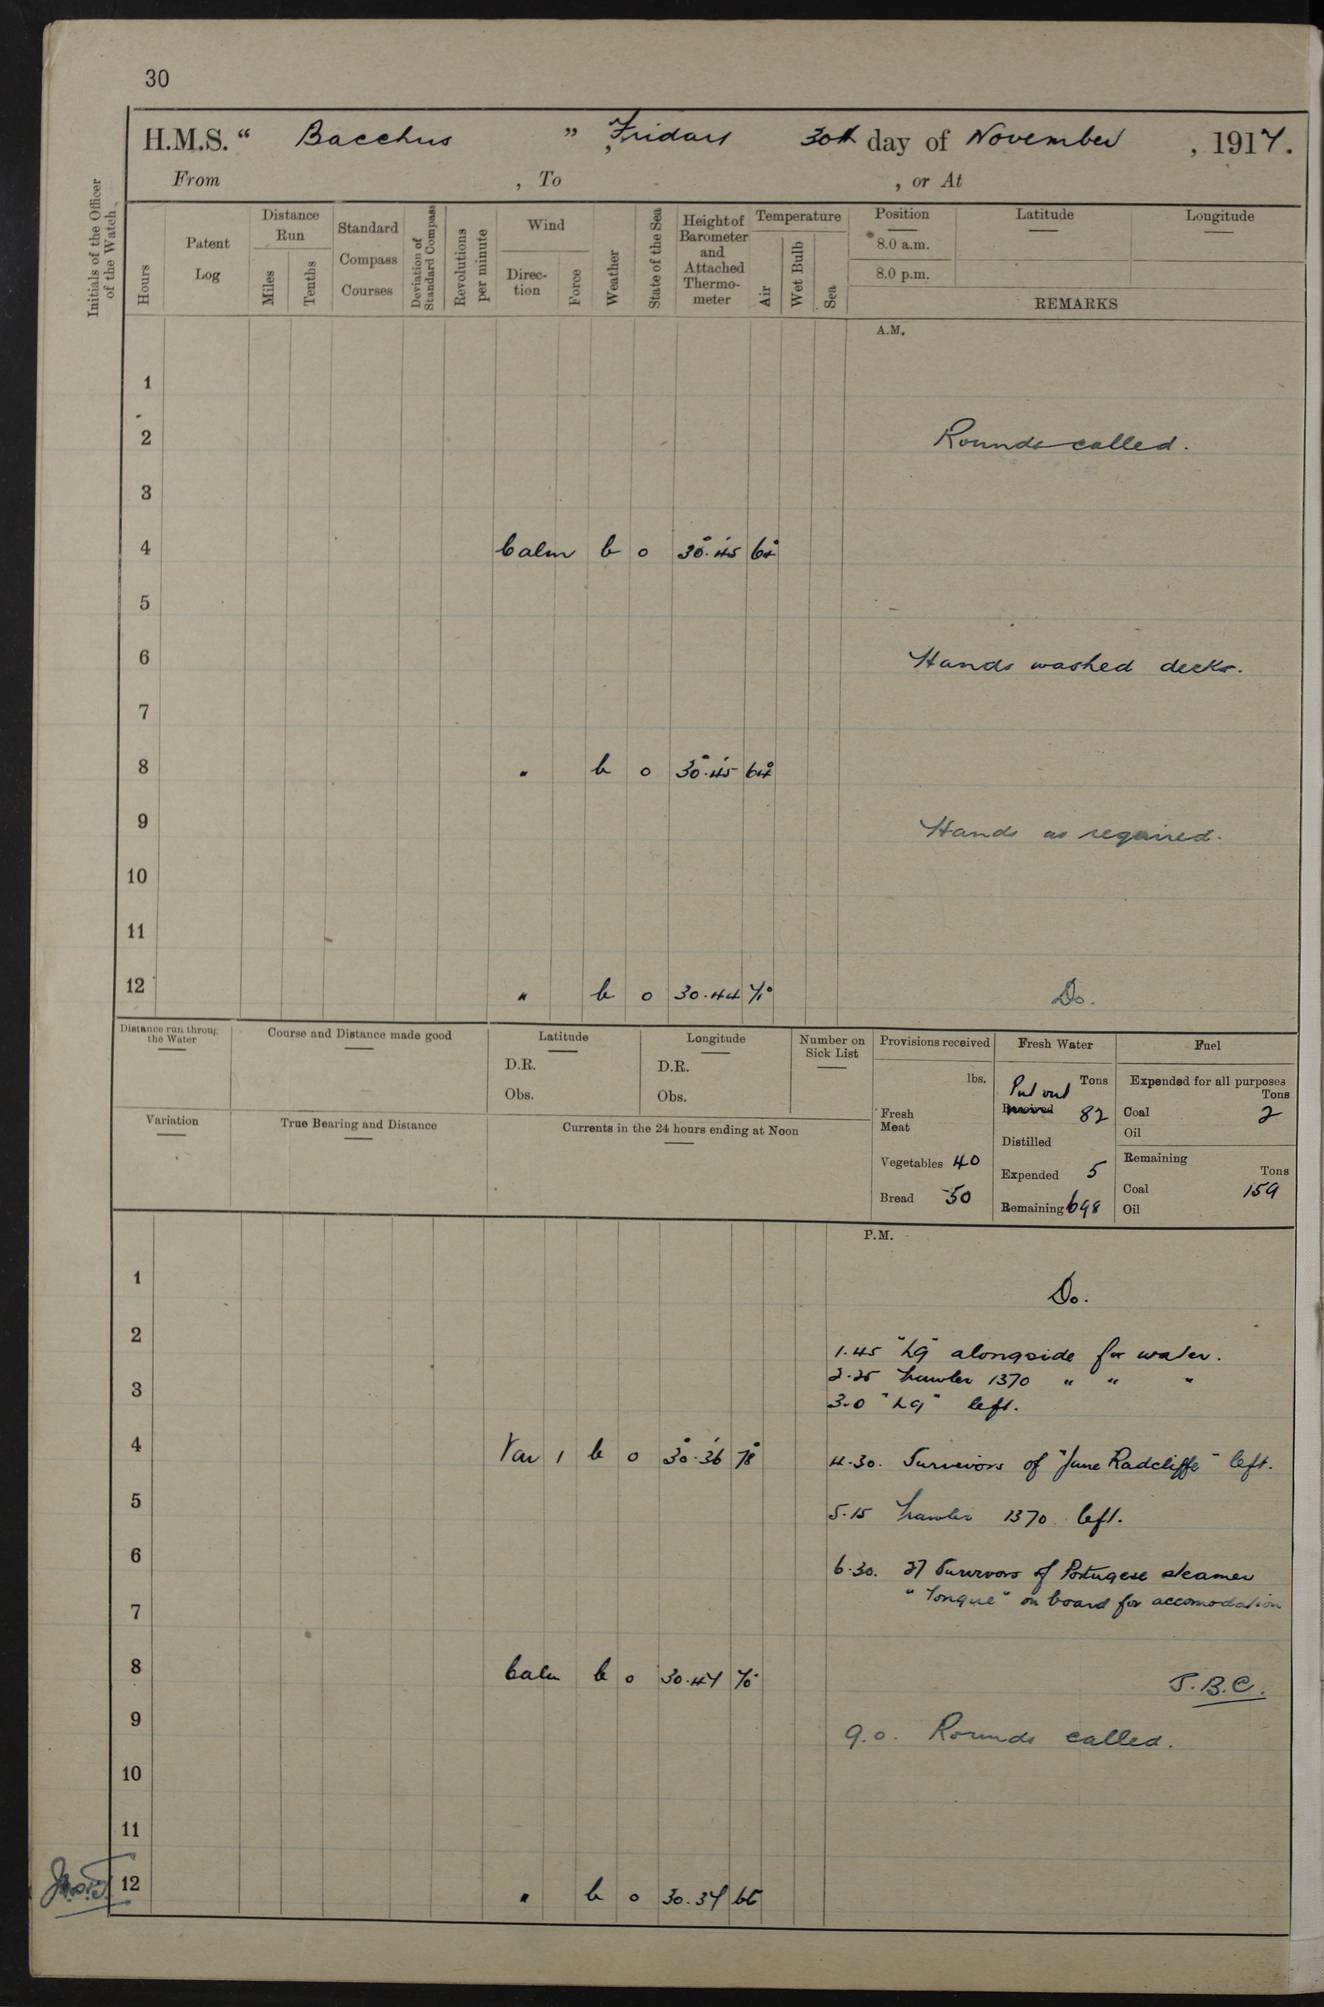 30
H.M.S. “ Bacchus ” , Friday 30th day of November , 1917.
From , To , or At
Initials of the Officer of the Watch.
Hours
Patent Log
Distance Run
Miles
Tenths
Standard Compass Courses
Deviation of Standard Compass
Revolutions per minute
Wind
Direc-tion
Force
Weather
State of the Sea
Height of Barometer and Attached Thermo-meter
Temperature
Air
Wet Bulb
Sea
Position Latitude Longitude
8.0 a.m.
8.0 p.m.
REMARKS
A.M.
1
2 Rounds called.
3
4 Calm b o 30.45 64
5
6 Hands washed decks.
7
8 " b o 30.45 64
9 Hands as required.
10
11
12 " b o 30.44 71 Do.
Distance run through the Water
Course and Distance made good
Latitude
D.R.
Obs.
Longitude
D.R.
Obs.
Number on Sick List
Variation
True Bearing and Distance
Currents in the 24 hours ending at Noon
Provisions received
lbs.
Fresh Meat
Vegetables 40
Bread 50
Fresh Water
Tons
Put out
Received 82
Distilled
Expended 5
Remaining 698
Fuel
Expended for all purposes
Tons
Coal 2
Oil
Remaining
Tons
Coal 159
Oil
P.M.
1 Do.
2 1.45 "L9" alongside for water.
2.25 Trawler 1370 " " "
3 3.0 "L9" left.
4 Var 1 b o 30.36 78 4.30. Survivors of "Jane Radcliffe" left.
5 5.15 Trawler 1370 left.
6 6.30. 27 Survivors of Portugese steamer
"Tongue" on board for accomodation
7
8 Calm b o 30.47 70
J.B.C.
9 9.0. Rounds called.
10
11
12 " b o 30.37 66